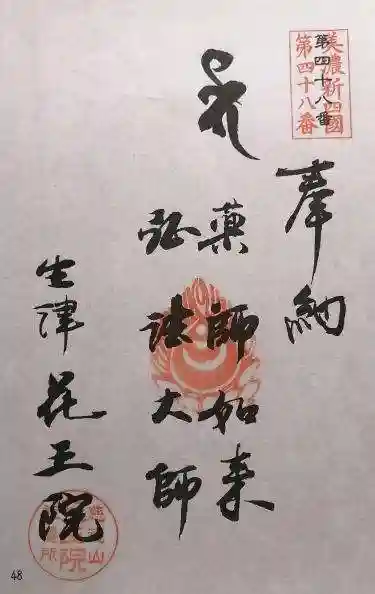 美濃新四國
第四十八番
第四十八番
奉納
薬師如来
弘法大師
生津
花王院
48